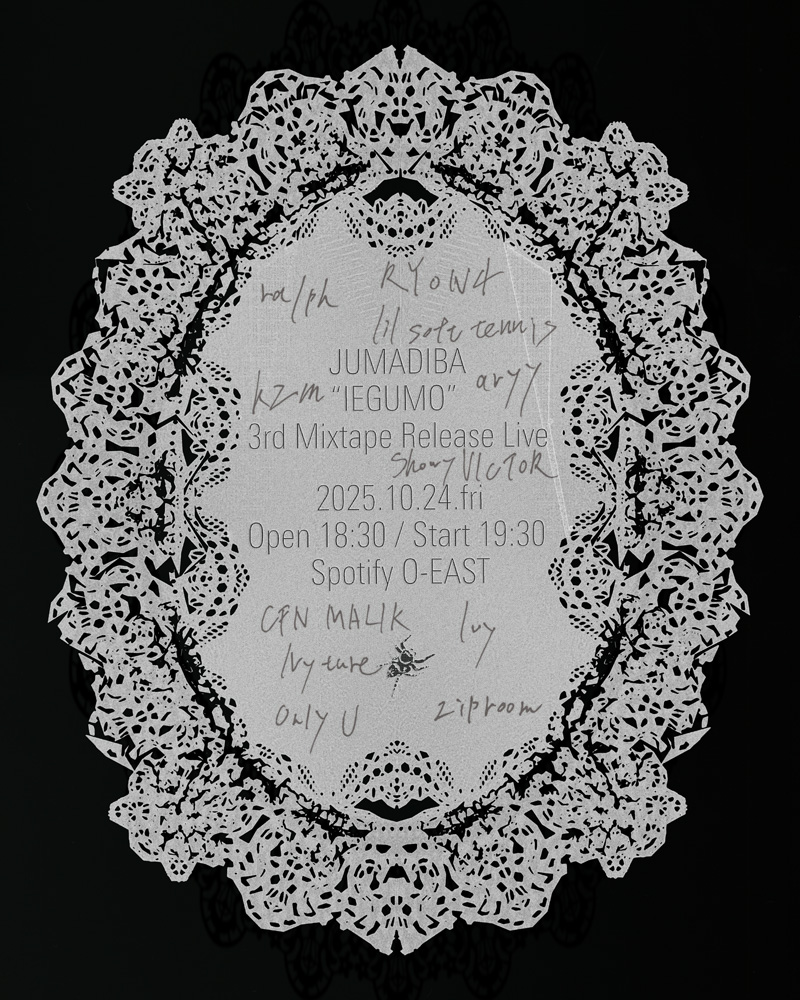 ralph
RYOWA
lil soft tennis
JUMADIBA
kzm
"IEGUMO"
aryy
3rd Mixtape Release Live
ShowyVICTOR
2025.10.24.fri
Open 18:30 / Start 19:30
Spotify O-EAST
CFN MALIK
Ivy
Only U
ziproom